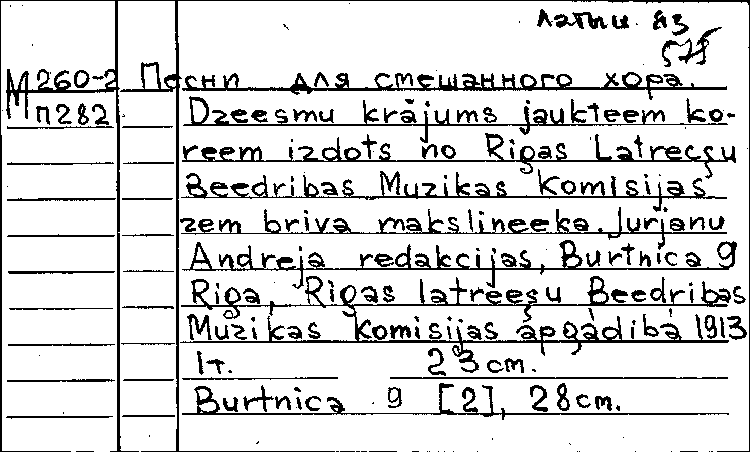 латыш яз
575
М 260-2 Песни для смешанного хора.
п282 Dzeesmu krājums jaukteem ko-
reem izdots no Rigas Latreeşu
Beedribas Muzikas Komisijas
zem briva makslineeka. Jurjanu
Andreja redakcijas, Burtnica 9
Riga, Rigas latreeşu Beedribas
Muzikas Komisijas apgādibā 1913
1т. 23cm.
Burtnica 9 [2], 28cm.